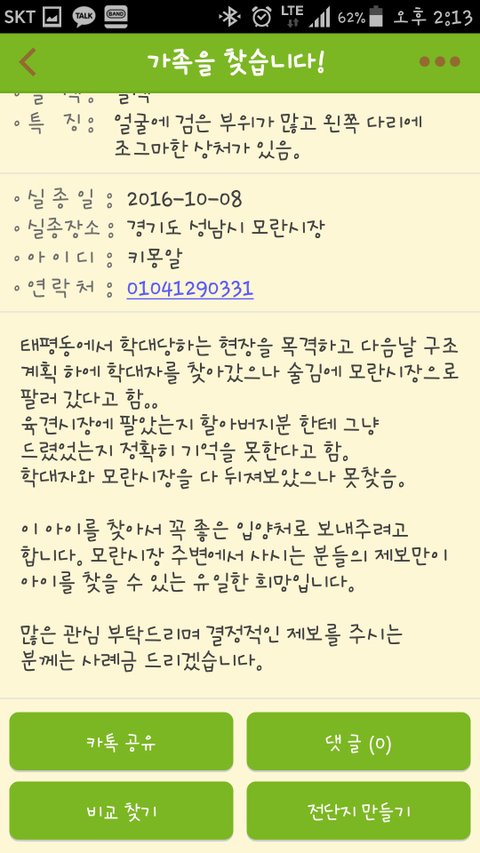 SKT TALK BAND LTE 62% 오후 2:13
가족을 찾습니다!
• 특 징 : 얼굴에 검은 부위가 많고 왼쪽 다리에
조그마한 상처가 있음.
• 실 종 일 : 2016-10-08
• 실종장소 : 경기도 성남시 모란시장
• 아 이 디 : 키몽알
• 연 락 처 : 01041290331
태평동에서 학대당하는 현장을 목격하고 다음날 구조
계획 하에 학대자를 찾아갔으나 술김에 모란시장으로
팔러 갔다고 함..
육견시장에 팔았는지 할아버지분 한테 그냥
드렸었는지 정확히 기억을 못한다고 함.
학대자와 모란시장을 다 뒤져보았으나 못찾음.
이 아이를 찾아서 꼭 좋은 입양처로 보내주려고
합니다. 모란시장 주변에서 사시는 분들의 제보만이
아이를 찾을 수 있는 유일한 희망입니다.
많은 관심 부탁드리며 결정적인 제보를 주시는
분께는 사례금 드리겠습니다.
카톡 공유
댓글 (0)
비교 찾기
전단지 만들기